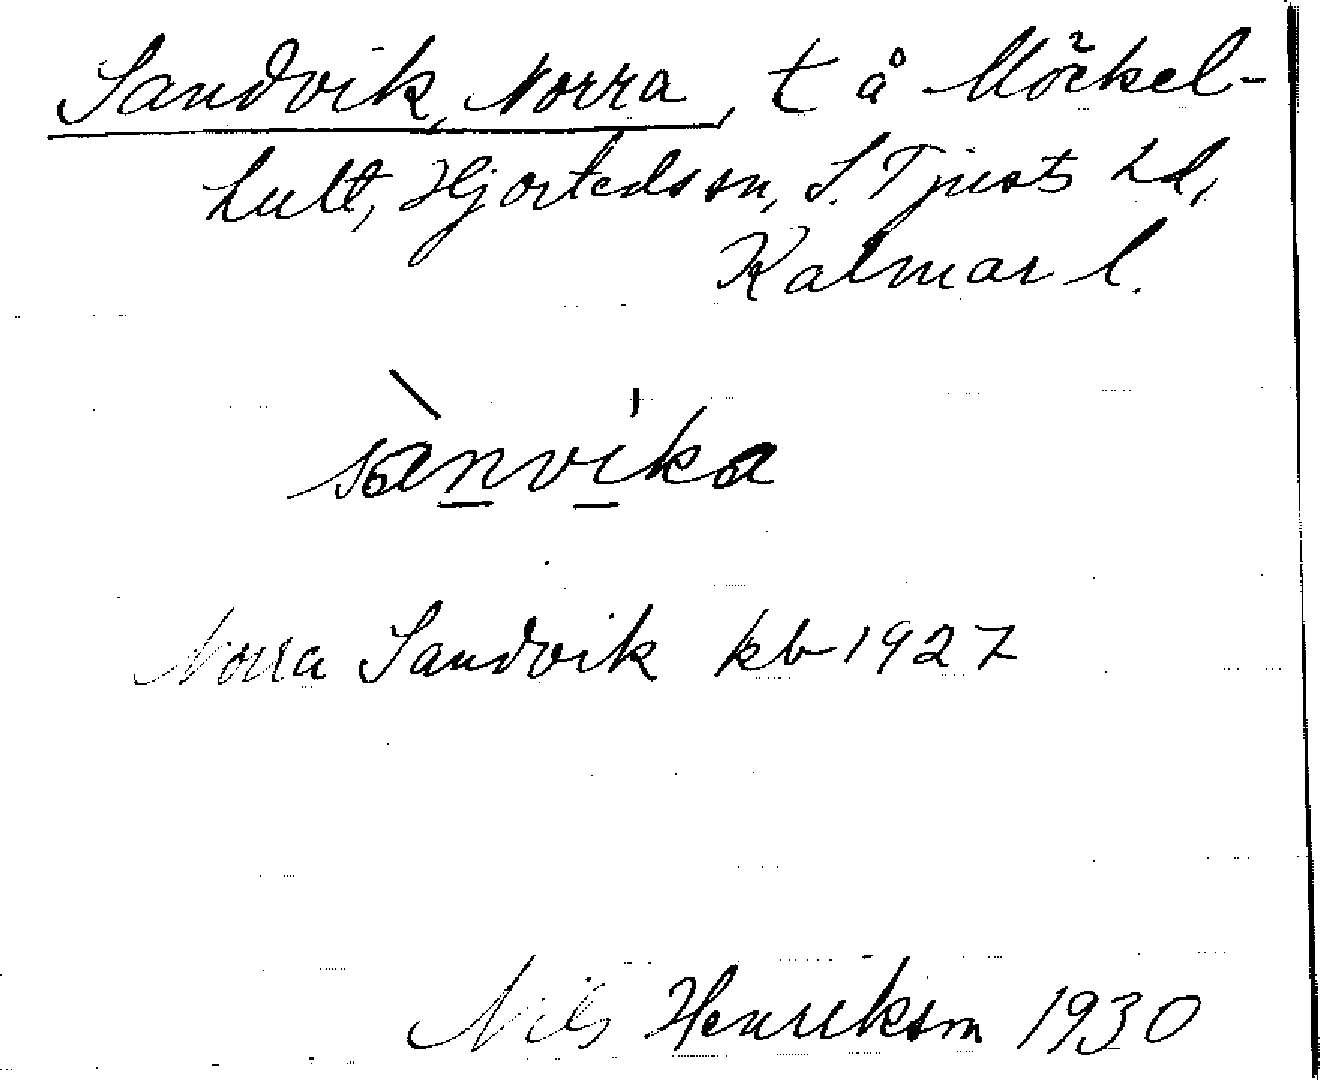 Sandvik, Norra, t å Möckel-
hult, Hjorteds sn, S. Tjusts hd,
Kalmar l.
sànvika
Norra Sandvik kb 1927
Nils Henrikson 1930